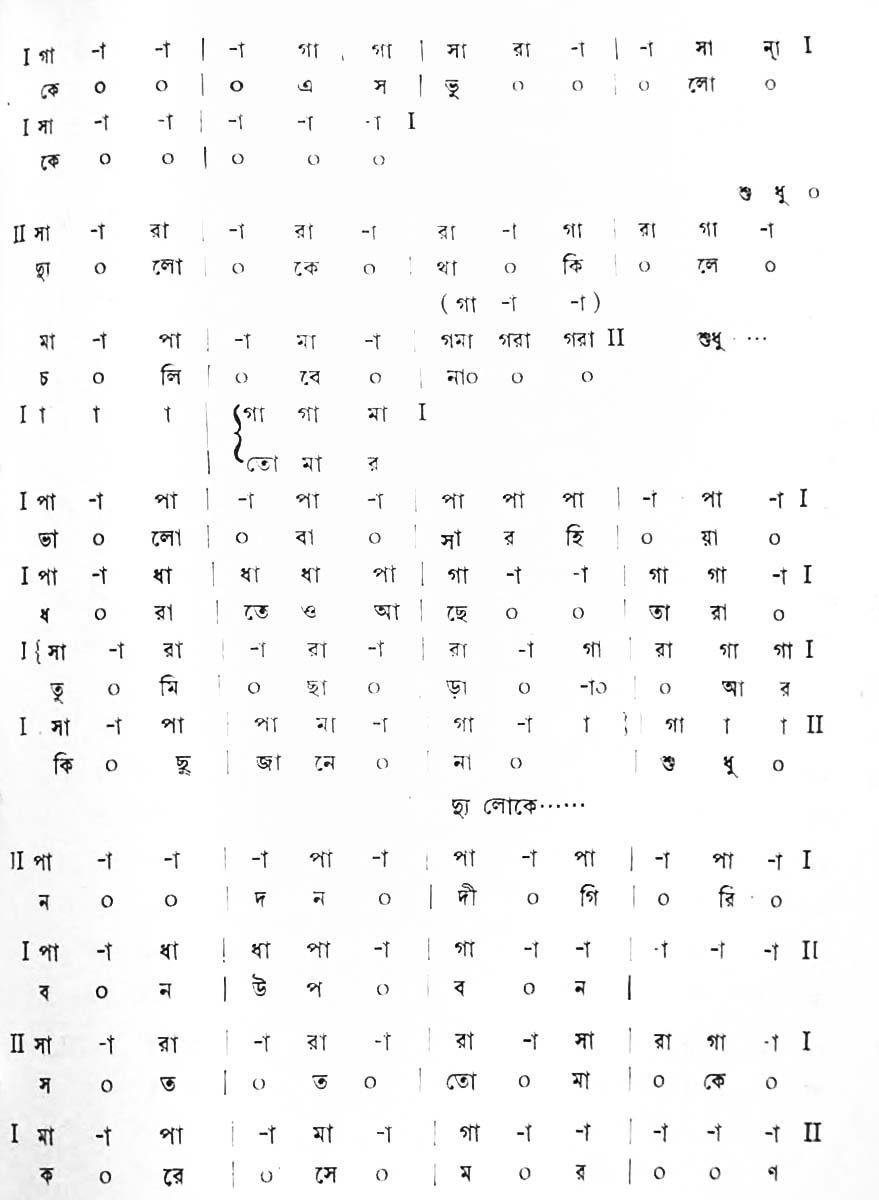 I গা -া -া | -া গা গা | সা রা -া | -া সা ন্‌া I
কে ০ ০ | ০ এ স | ভু ০ ০ | ০ লো ০
I সা -া -া | -া -া -া I
কে ০ ০ | ০ ০ ০
শু ধু ০
II সা -া রা | -া রা -া রা -া গা | রা গা -া
দ্যু ০ লো | ০ কে ০ | থা ০ কি | ০ লে ০
( গা -া -া )
মা -া পা | -া মা -া | গমা গরা গরা II শুধু ...
চ ০ লি | ০ বে ০ | না০ ০ ০
I া া া | { গা গা মা I
| তো মা র
I পা -া পা | -া পা -া | পা পা পা | -া পা -া I
ভা ০ লো | ০ বা ০ | সা র হি | ০ য়া ০
I পা -া ধা | ধা ধা পা | গা -া -া | গা গা -া I
ধ ০ রা | তে ও আ | ছে ০ ০ | তা রা ০
I { সা -া রা | -া রা -া | রা -া গা | রা গা গা I
তু ০ মি | ০ ছা ০ ড়া ০ -া০ | ০ আ র
I সা -া পা | পা মা -া | গা -া া } | গা া া II
কি ০ ছু | জা নে ০ | না ০ | শু ধু ০
দ্যু লোকে......
II পা -া -া | -া পা -া | পা -া পা | -া পা -া I
ন ০ ০ | দ ন ০ | দী ০ গি | ০ রি ০
I পা -া ধা | ধা পা -া | গা -া -া | -া -া -া II
ব ০ ন | উ প ০ | ব ০ ন |
II সা -া রা | -া রা -া | রা -া সা | রা গা -া I
স ০ ত | ০ ত ০ | তো ০ মা | ০ কে ০
I মা -া পা | -া মা -া | গা -া -া | -া -া -া II
ক ০ রে | ০ সে ০ | ম ০ র | ০ ০ ণ